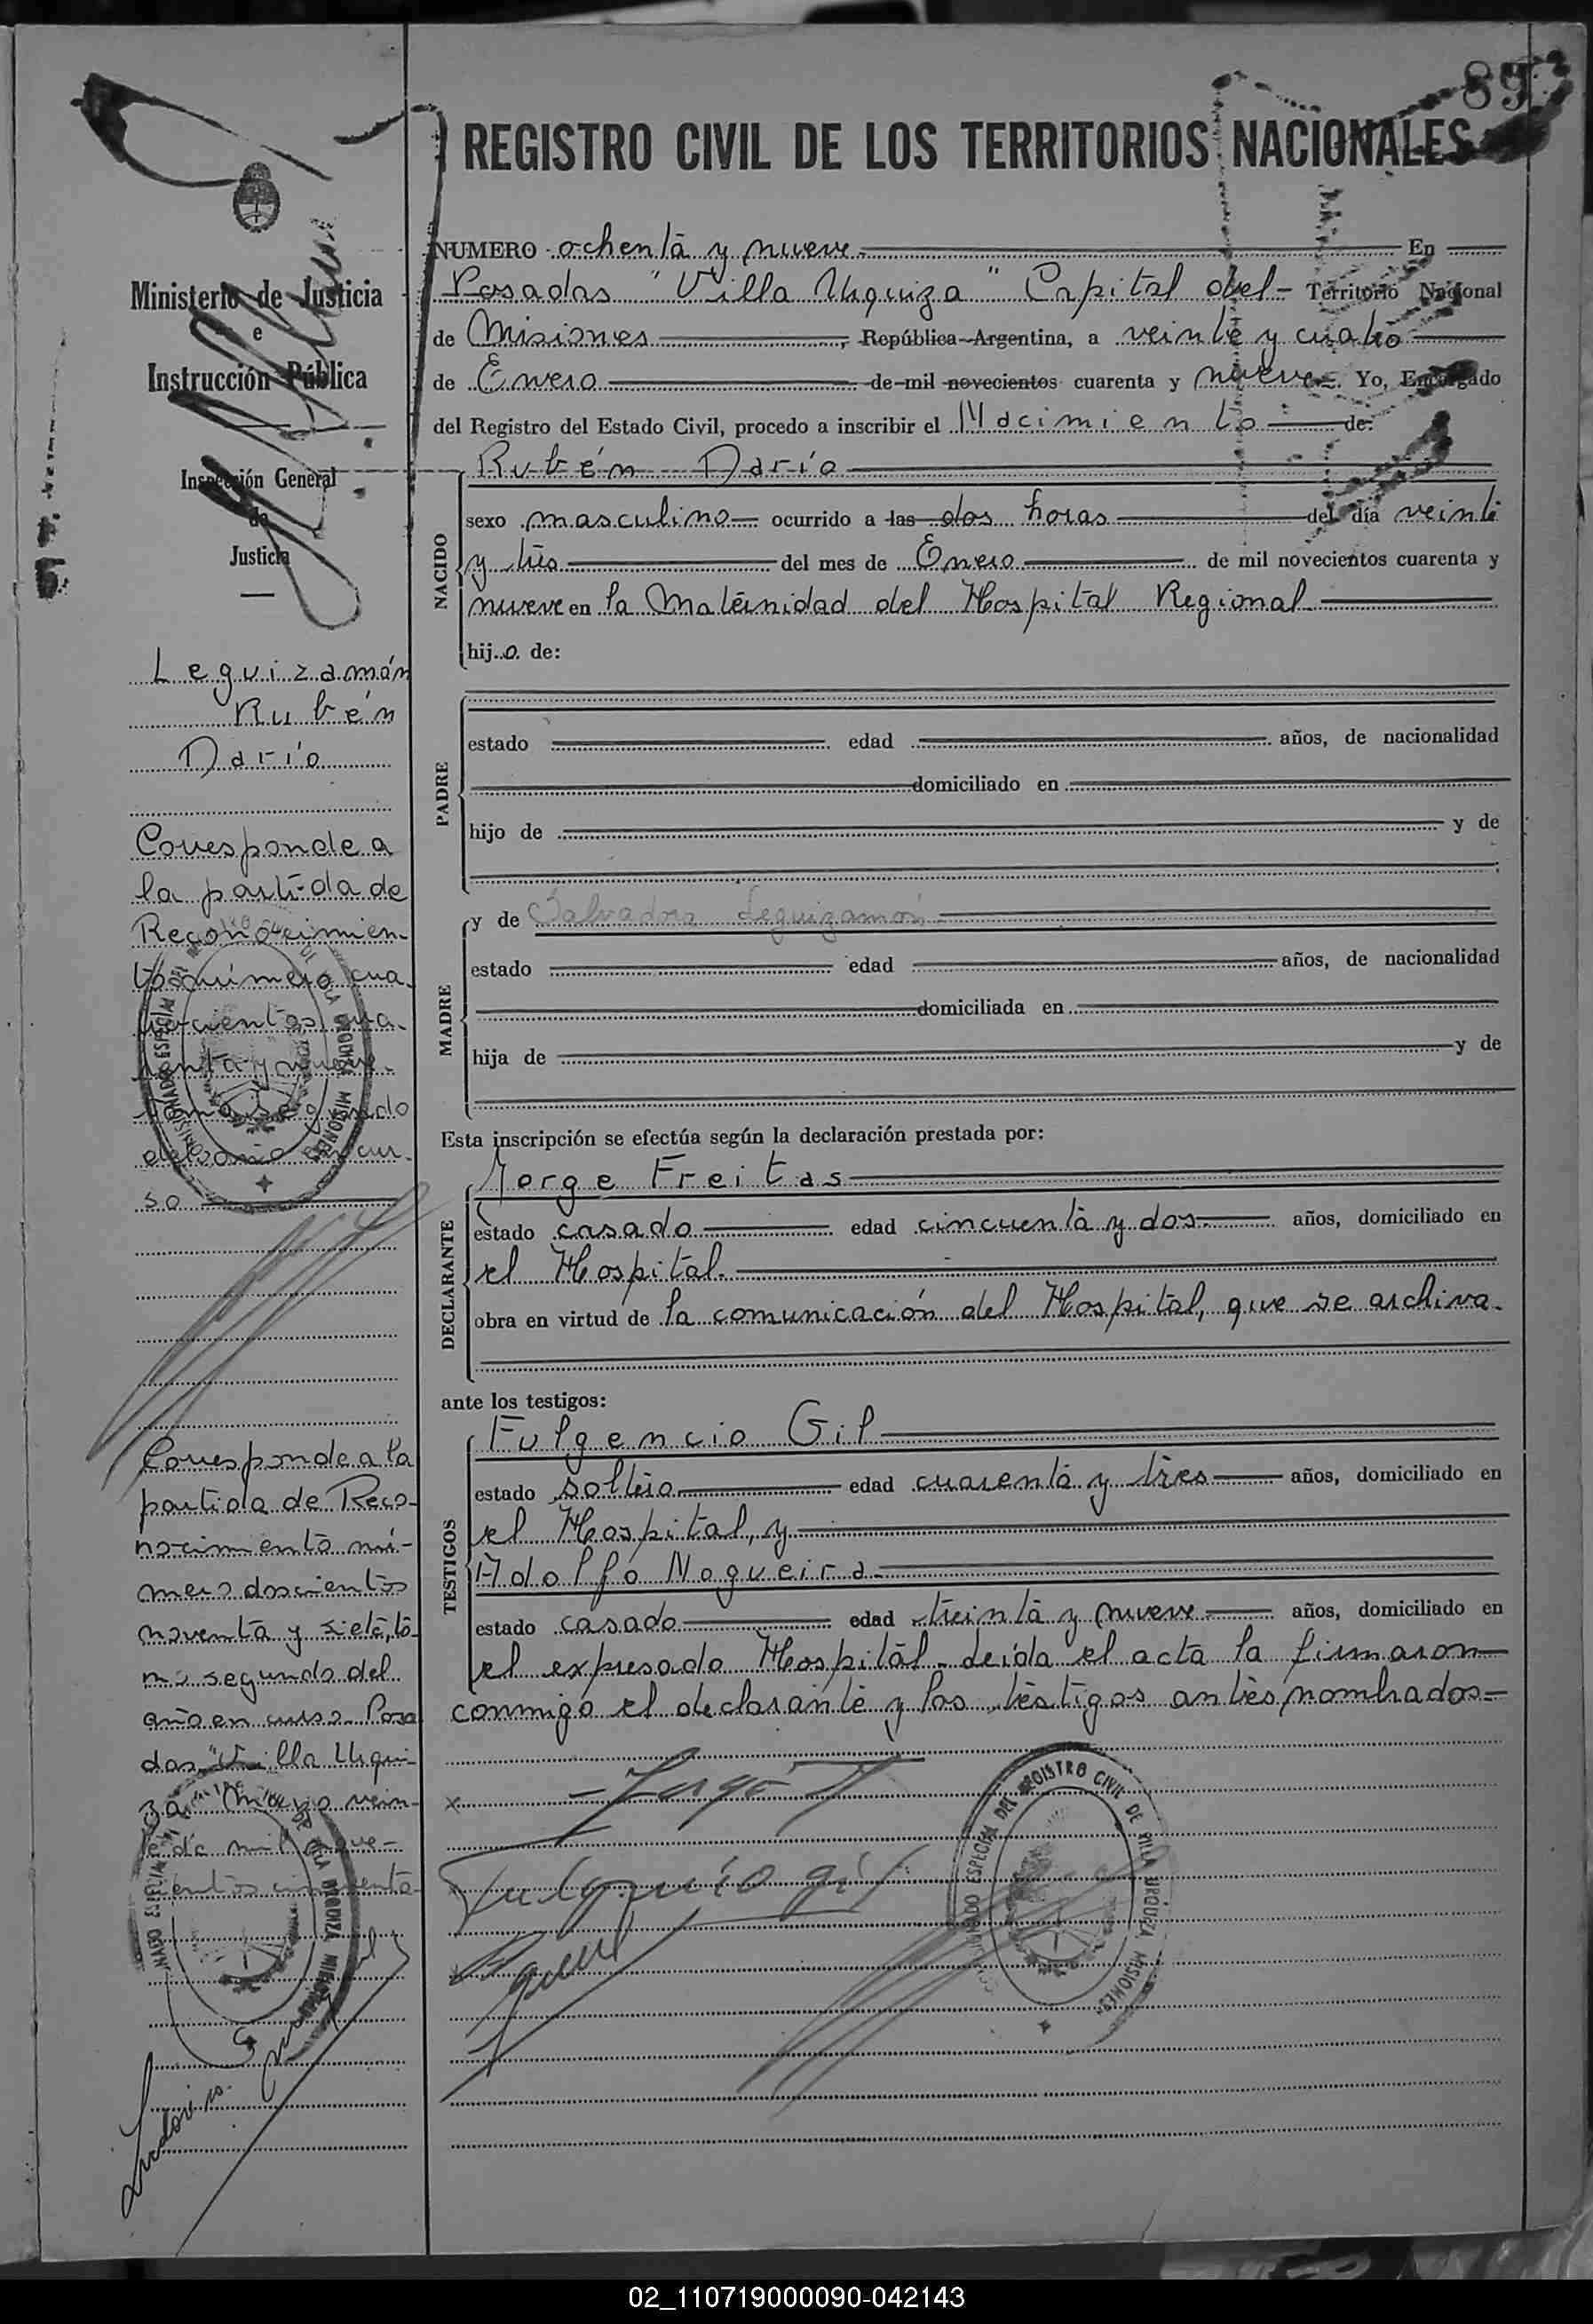 89
REGISTRO CIVIL DE LOS TERRITORIOS NACIONALES
NUMERO ochenta y nueve. En
Posadas "Villa Urquiza" Capital del Territorio Nacional
de Misiones, República Argentina, a veinte y cuatro
de Enero de mil novecientos cuarenta y nueve. Yo, Encargado
del Registro del Estado Civil, procedo a inscribir el Nacimiento de:
Rubén Darío
NACIDO
sexo masculino ocurrido a las dos horas del día veinte
y tres del mes de Enero de mil novecientos cuarenta y
nueve en la Maternidad del Hospital Regional.
hijo de:
PADRE
estado edad años, de nacionalidad
domiciliado en
hijo de y de
MADRE
y de Salvadora Leguizamón
estado edad años, de nacionalidad
domiciliada en
hija de y de
Esta inscripción se efectúa según la declaración prestada por:
DECLARANTE
Jorge Freitas
estado casado edad cincuenta y dos años, domiciliado en
el Hospital.
obra en virtud de la comunicación del Hospital, que se archiva.
ante los testigos:
TESTIGOS
Fulgencio Gil
estado soltero edad cuarenta y tres años, domiciliado en
el Hospital, y
Adolfo Nogueira
estado casado edad treinta y nueve años, domiciliado en
el expresado Hospital. Leída el acta la firmaron
conmigo el declarante y los testigos antes nombrados=
x Jorge
Fulgencio gil
COMISIONADO ESPECIAL DEL REGISTRO CIVIL DE VILLA URQUIZA MISIONES
Ministerio de Justicia
e
Instrucción Pública
Inspección General
de
Justicia
Leguizamón
Rubén
Darío
Corresponde a
la partida de
Reconocimien-
to número cua-
trocientos cua-
renta y nueve
tomo segundo
del año en cur-
so
Corresponde a la
partida de Reco-
nocimiento nú-
mero doscientos
noventa y siete, to-
mo segundo del
año en curso. Posa
das, "Villa Urqui-
za" Mayo vein-
te de mil nove-
cientos cincuenta
COMISIONADO ESPECIAL DEL REGISTRO CIVIL DE VILLA URQUIZA MISIONES
02_110719000090-042143